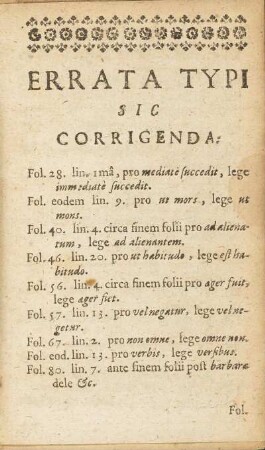 ERRATA TYPI
SIC
CORRIGENDA:
Fol. 28. lin. 1mâ, pro mediatè ſuccedit, lege
immediatè ſuccedit.
Fol. eodem lin. 9. pro ut mors, lege ut
mons.
Fol. 40. lin. 4. circa finem folii pro ad aliena-
tum, lege ad alienantem.
Fol. 46. lin. 20. pro ut habitudo, lege eſt ha-
bitudo.
Fol. 56. lin. 4. circa finem folii pro ager fuit,
lege ager ſict.
Fol. 57. lin. 13. pro vel negatur, lege vel ne-
getur.
Fol. 67. lin. 2. pro non omne, lege omne non.
Fol. eod. lin. 13. pro verbis, lege verſibus.
Fol. 80. lin. 7. ante finem folii poſt barbaræ
dele &c.
Fol.